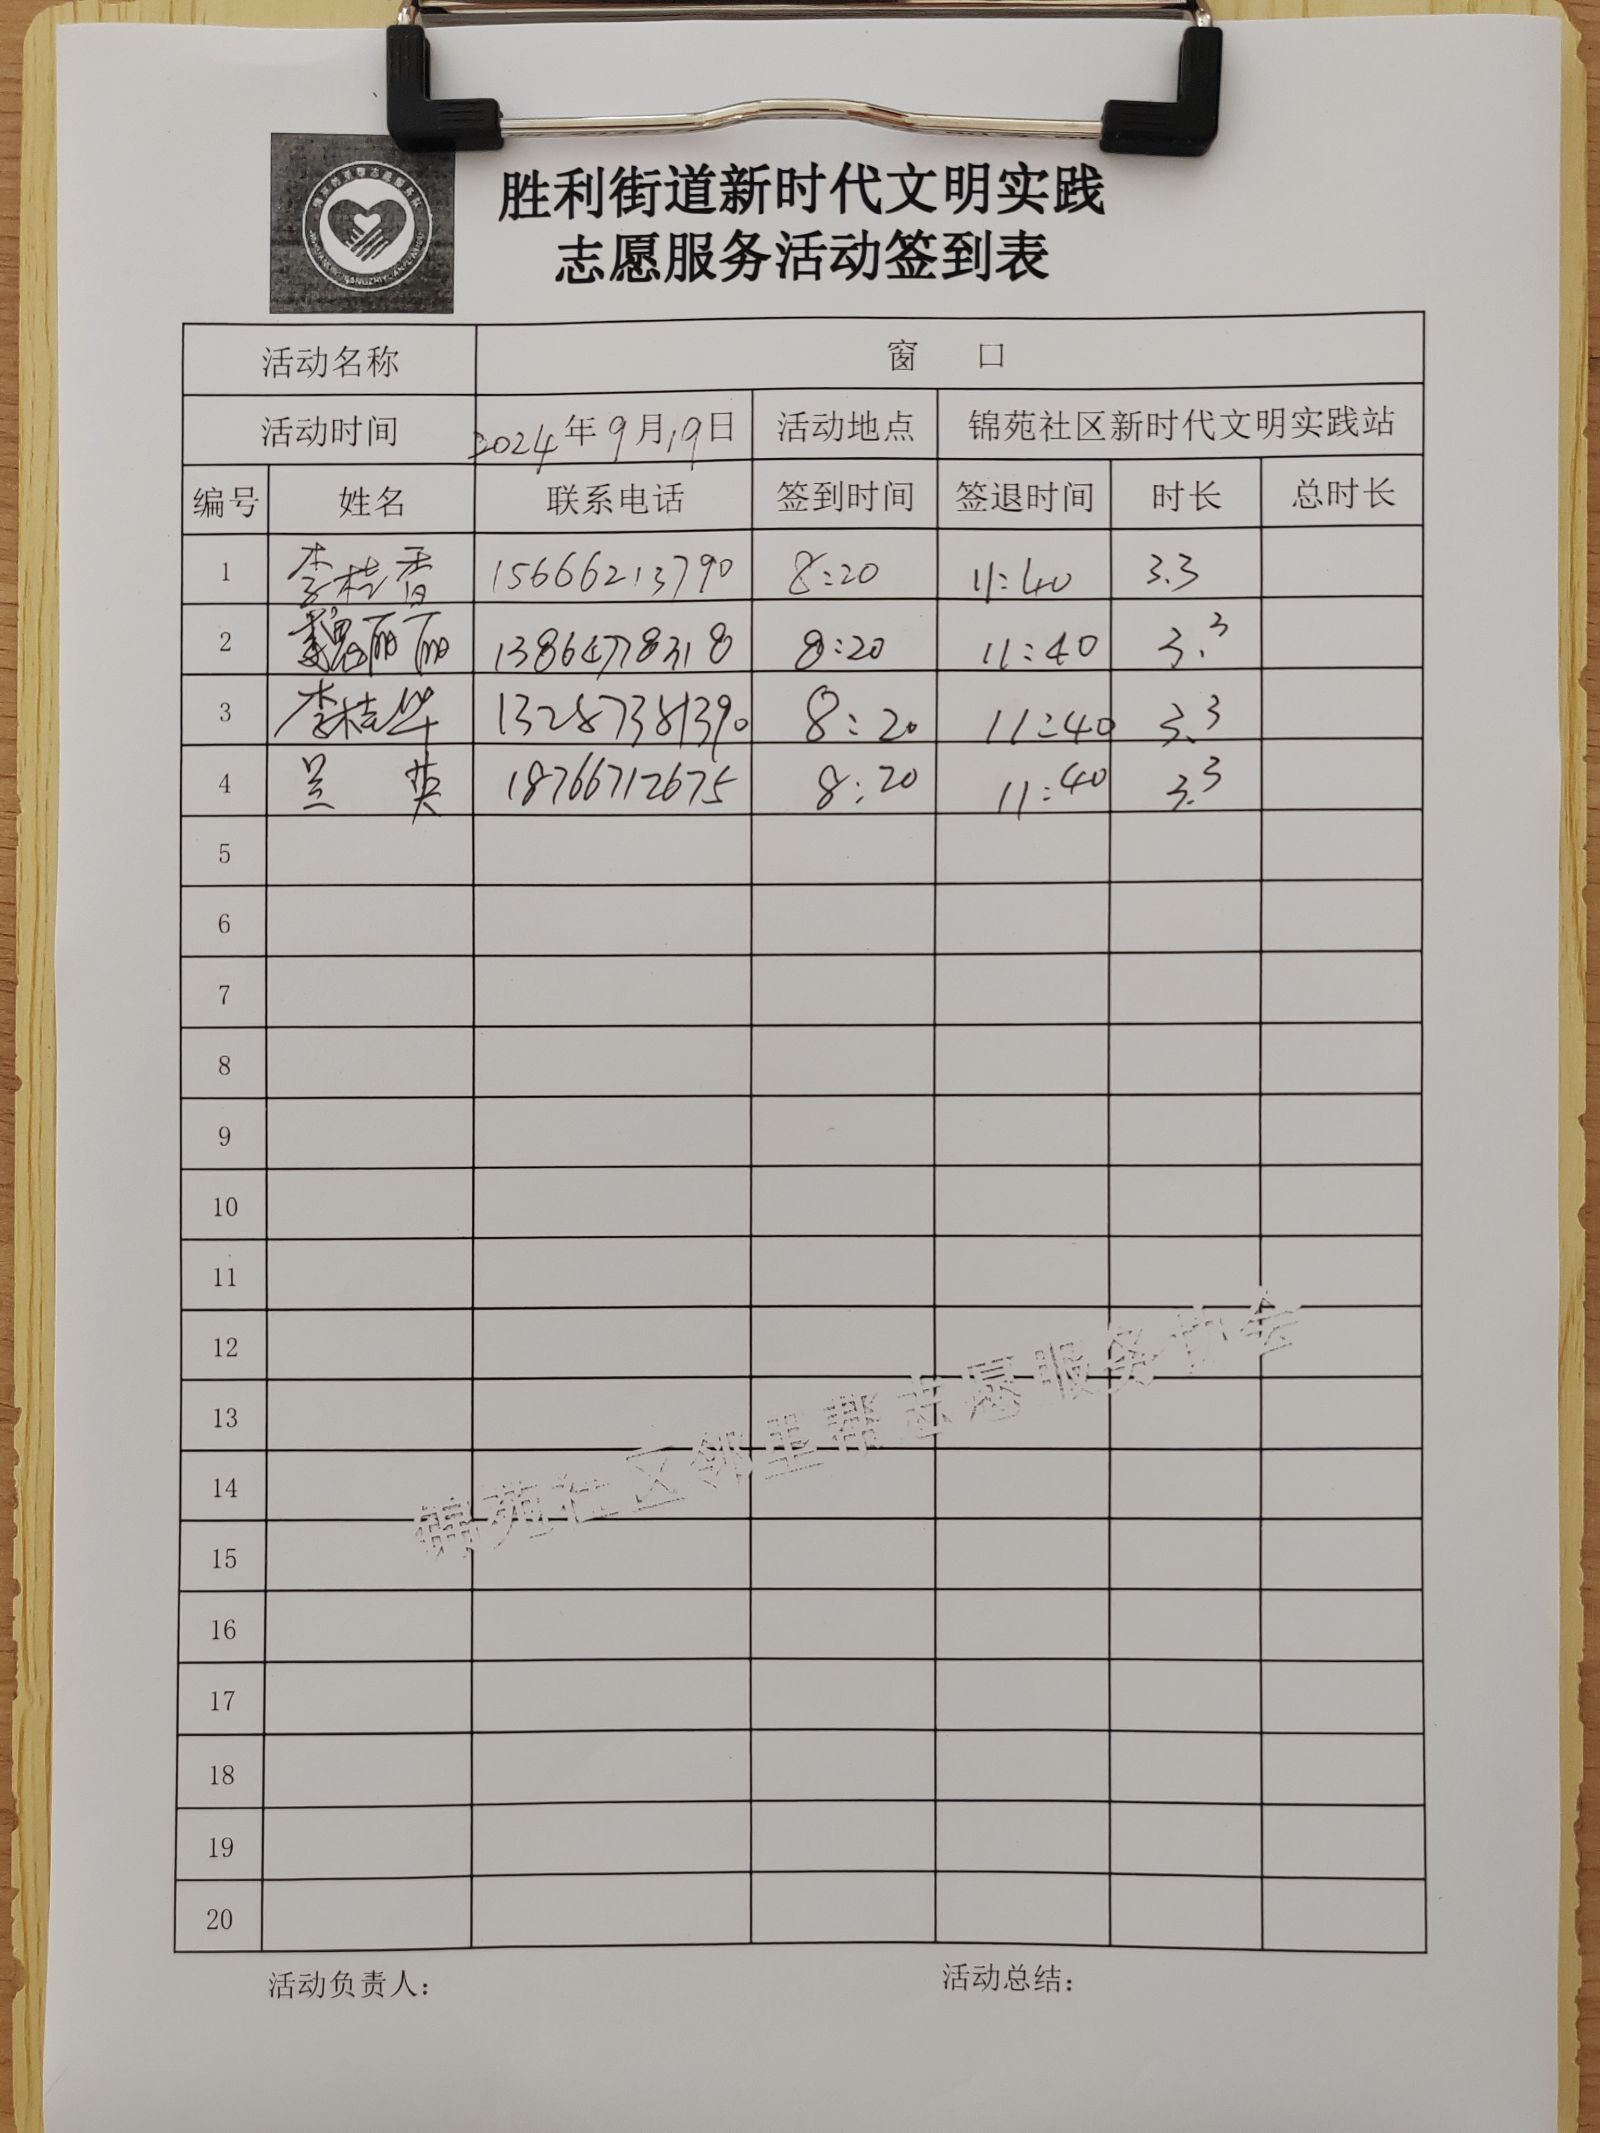 胜利街道新时代文明实践
志愿服务活动签到表
活动名称 窗 口
活动时间 2024年9月19日 活动地点 锦苑社区新时代文明实践站
编号 姓名 联系电话 签到时间 签退时间 时长 总时长
1 李桂香 15666213790 8:20 11:40 3.3
2 魏丽丽 13864778318 8:20 11:40 3.3
3 李桂华 13287381390 8:20 11:40 3.3
4 兰 英 18766712675 8:20 11:40 3.3
5
6
7
8
9
10
11
12
13
14
15
16
17
18
19
20
锦苑社区邻里帮志愿服务协会
活动负责人： 活动总结：